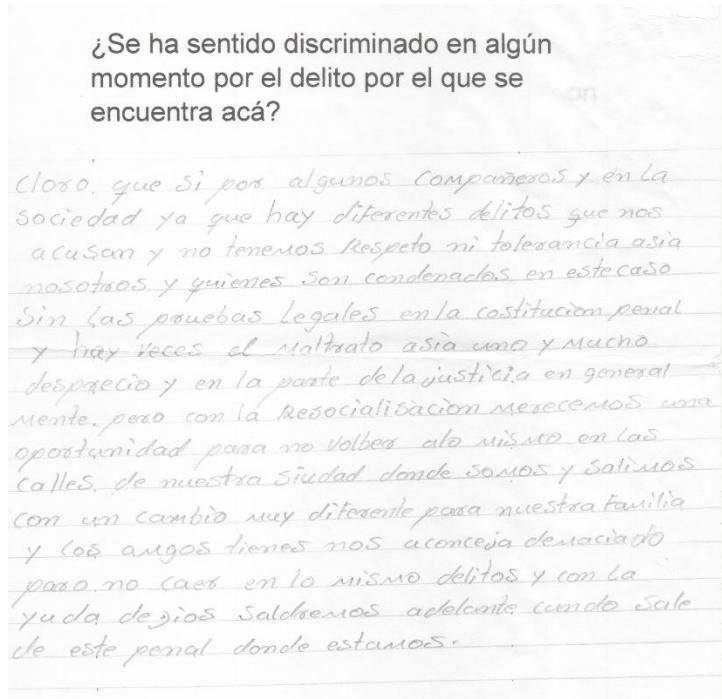 ¿Se ha sentido discriminado en algún
momento por el delito por el que se
encuentra acá?
Cloro. que Si por algunos compañeros y en La
sociedad ya que hay diferentes delitos que nos
acusan y no tenemos Respeto ni tolerancia asia
nosotros y quienes Son condenados en este caso
Sin Las pruebas Legales en la costitucion penal
y hay Veces el Maltrato asia uno y Mucho
desprecio y en la parte de la justicia en general
mente. pero con la Resocialisacion merecemos una
oportunidad para no Volber alo mismo en Las
calles. de nuestra Siudad donde somos y Salimos
con un cambio muy diferente para nuestra Familia
y Los amgos tienes nos aconceja demaciado
paro. no caer en lo mismo delitos y con La
yuda de Dios Saldremos adelante cundo Sale
de este penal donde estamos.